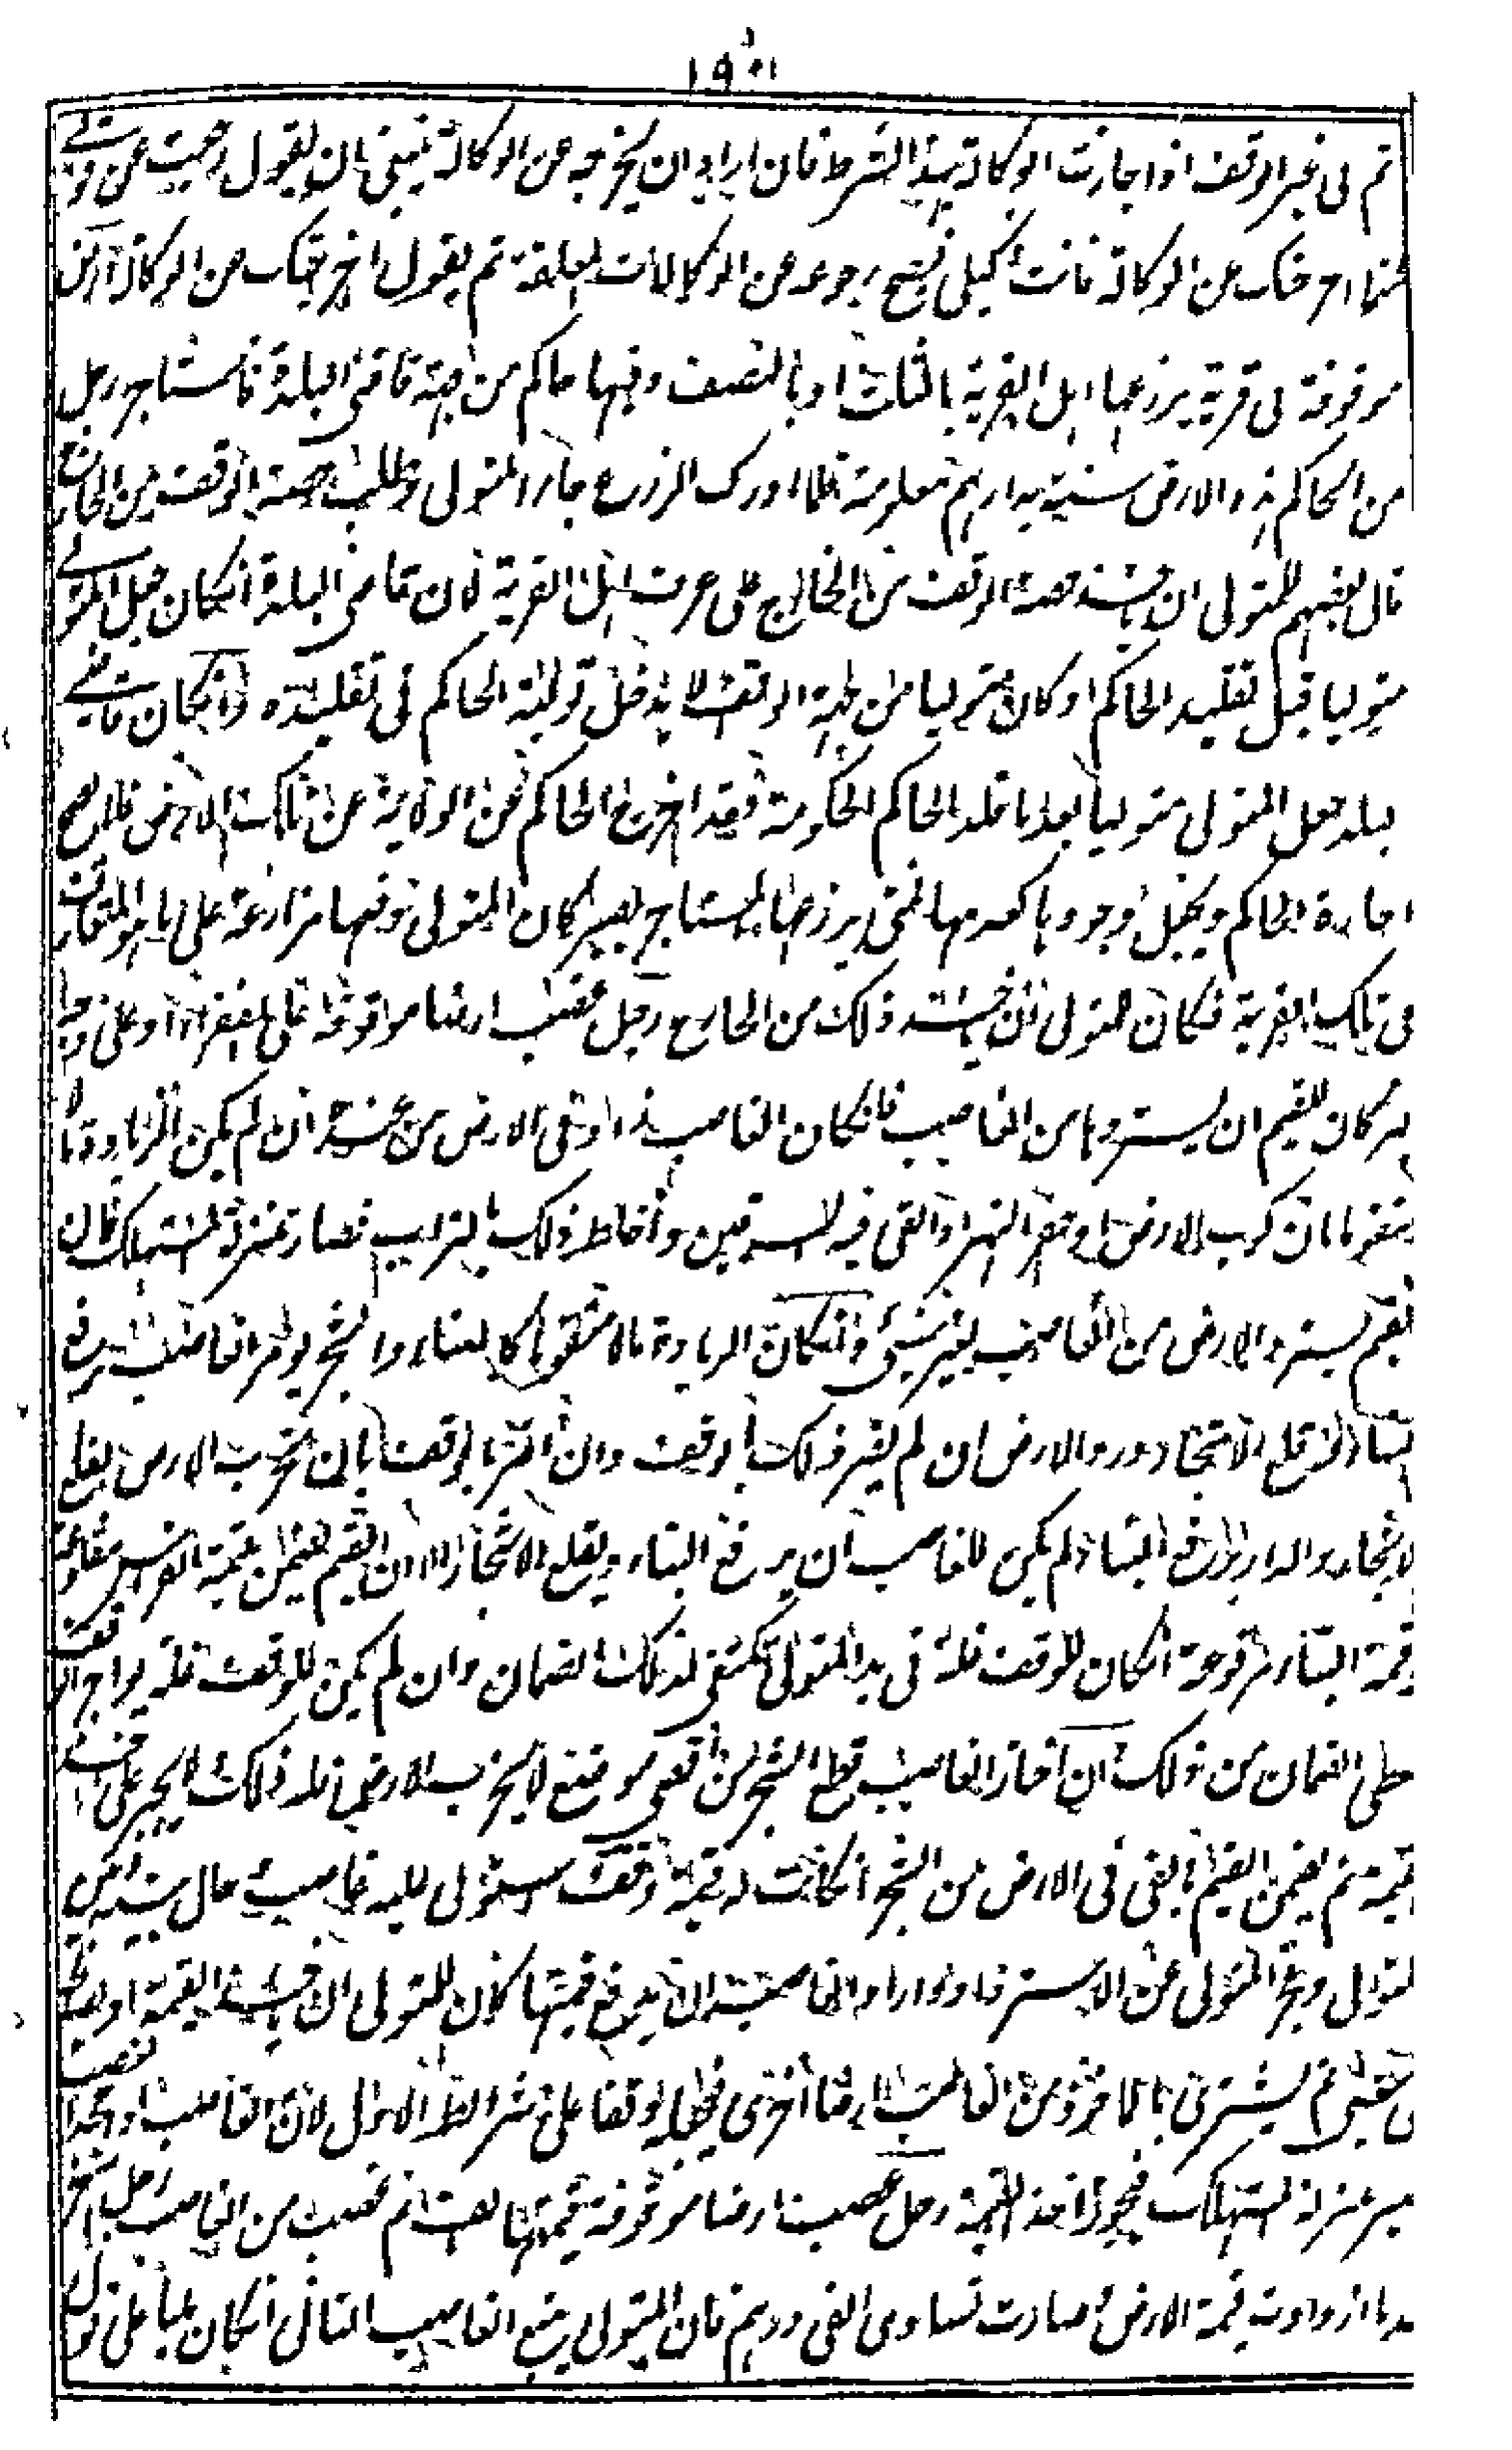 ثم فى غير الوقف اذا جازت الوكالة بهذا الشرط فان اراد ان يخرجه عن الوكالة ينبغى ان يقول رجعت عن
عن الوكالة فانت وكيلى فيصح رجوعه عن الوكالات المعلقة ثم يقول اخرجتك من الوكالة ارض
موقوفة فى قرية يزرعها اهل القرية بالثلث او بالنصف وفيها حاكم من جهة قاضى البلدة فاستاجر رجل
من الحاكم هذه الارض سنة بدراهم معلومة فلما ادرك الزرع جاء المتولى وطلب حصة الوقف من الخارج
قال بعضهم للمتولى ان ياخذ حصة الوقف من الخارج على عرف اهل القرية لان قاضى البلدة انكان جعل المتولى
متوليا قبل تقليد الحاكم او كان متوليا من جهة الواقف لا يدخل تولية الحاكم فى تقليده وانكان قاضى
بلد جعل المتولى متوليا بعد ما قلد الحاكم الحكومة فقد اخرج الحاكم عن الولاية عن تلك الارض فلا يصح
اجارة الحاكم ويجعل وجودها كعدمها فمتى يزرعها المستاجر يصير كان المتولى دفعها مزارعة على ما هو المتعارف
فى تلك القرية فكان للمتولى ان ياخذ ذلك من الخارج رجل غصب ارضا موقوفة على الفقراء او على وجه
بر كان للقيم ان يستردها من الغاصب فانكان الغاصب زاد فى الارض من عنده ان لم يكن الزيادة مالا
متقوما بان كرب الارض او حفر النهر او القى فيه السرقين واختلط ذلك بالتراب فصار بمنزلة المستهلك فان
القيم يسترد الارض من الغاصب بغير شىء وانكان الزيادة مالا متقوما كالبناء والشجر يؤمر الغاصب برفع
البناء وقلع الاشجار ورد الارض ان لم يضر ذلك بالوقف وان اضر بالوقف بان تخرب الارض بقلع
الاشجار والدار برفع البناء لم يكن للغاصب ان يرفع البناء ويقلع الاشجار الا ان القيم يضمن قيمة الغرس مقلوعا
وقيمة البناء مرفوعة انكان للوقف غلة فى يد المتولى تكفى لذلك الضمان وان لم يكن للوقف غلة يؤاجر الوقف
فيعطى الضمان من ذلك ان اختار الغاصب قطع الشجر من اقصى موضع لا يخرب الارض فله ذلك لا يجبر على اخذ
القيمة ثم يضمن القيم ما بقى فى الارض من الشجر انكانت له قيمة وقف استولى عليه غاصب حال بينه وبين
المتولى وعجز المتولى عن الاسترداد واراد الغاصب ان يدفع قيمتها كان للمتولى ان ياخذ القيمة او يصالح
على شىء ثم يشترى بالماخوذ من الغاصب ارضا اخرى فيجعله وقفا على شرائط الاول لان الغاصب اذا جحد الغصب
يصير بمنزلة المستهلك فيجوز اخذ القيمة رجل غصب ارضا موقوفة قيمتها الف ثم غصب من الغاصب رجل آخر
بعد ما ازدادت قيمة الارض وصارت تساوى الفى درهم فان المتولى يتبع الغاصب الثانى انكان مليا على قول